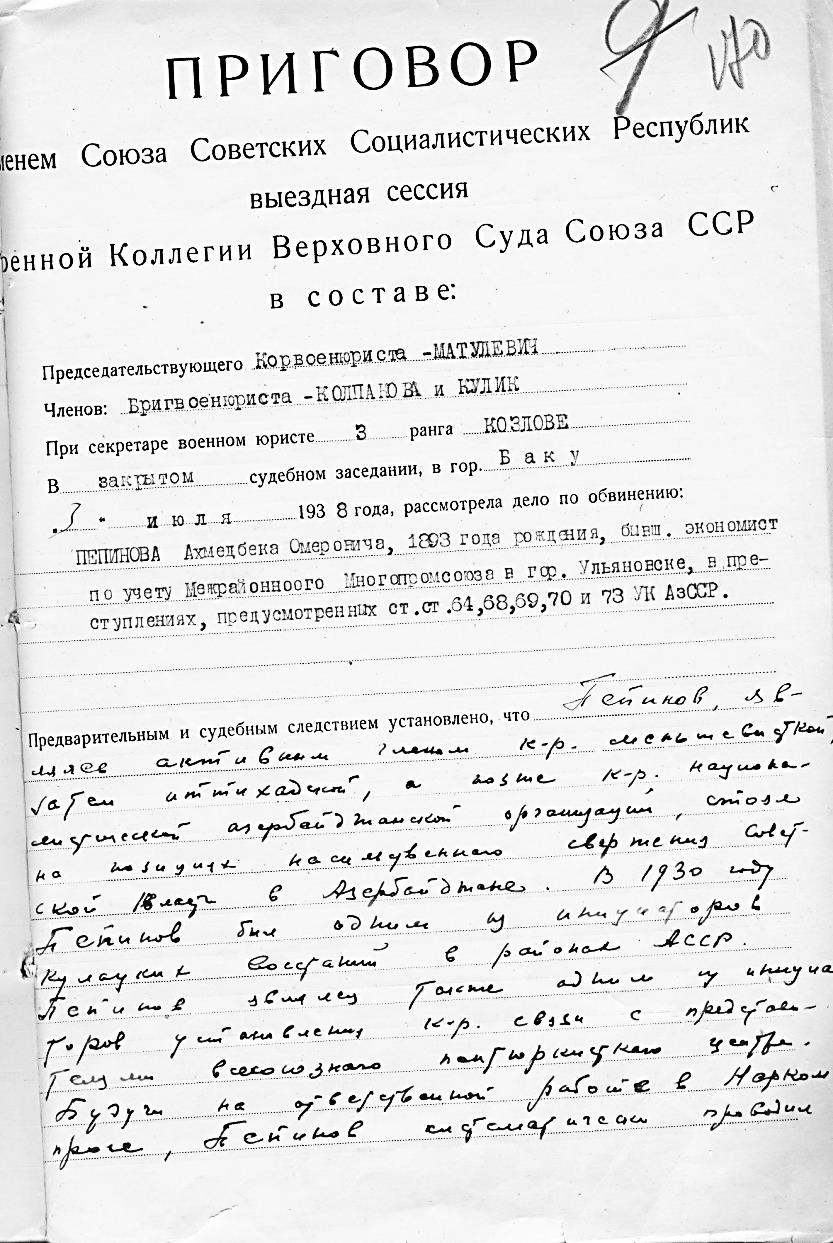 9 170
ПРИГОВОР
менем Союза Советских Социалистических Республик
выездная сессия
оенной Коллегии Верховного Суда Союза ССР
в составе:
Председательствующего Корвоенюриста -МАТУЛЕВИЧ
Членов: Бригвоенюриста -КОЛПАКОВА и КУЛИК
При секретаре военном юристе 3 ранга КОЗЛОВЕ
В закрытом судебном заседании, в гор. Баку
3 " июля 1938 года, рассмотрела дело по обвинению:
ПЕПИНОВА Ахмедбека Омеровича, 1893 года рождения, бывш. экономист
по учету Межрайонноого Многопромсоюза в гор. Ульяновске, в пре-
ступлениях, предусмотренных ст.ст.64,68,69,70 и 73 УК АзССР.
Предварительным и судебным следствием установлено, что Пепинов, яв-
ляясь активным членом к-р. меньшевистской,
затем иттихадской, а позже к-р. национа-
листической азербайджанской организаций, стоял
на позициях насильственного свержения Совет-
ской власти в Азербайджане. В 1930 году
Пепинов был одним из инициаторов
кулацких восстаний в районах АССР.
Пепинов являлся также одним из инициа
торов установления к-р. связи с представи-
телями всесоюзного пантюркистского центра.
Будучи на ответственной работе в Нарком
просе, Пепинов систематически проводил